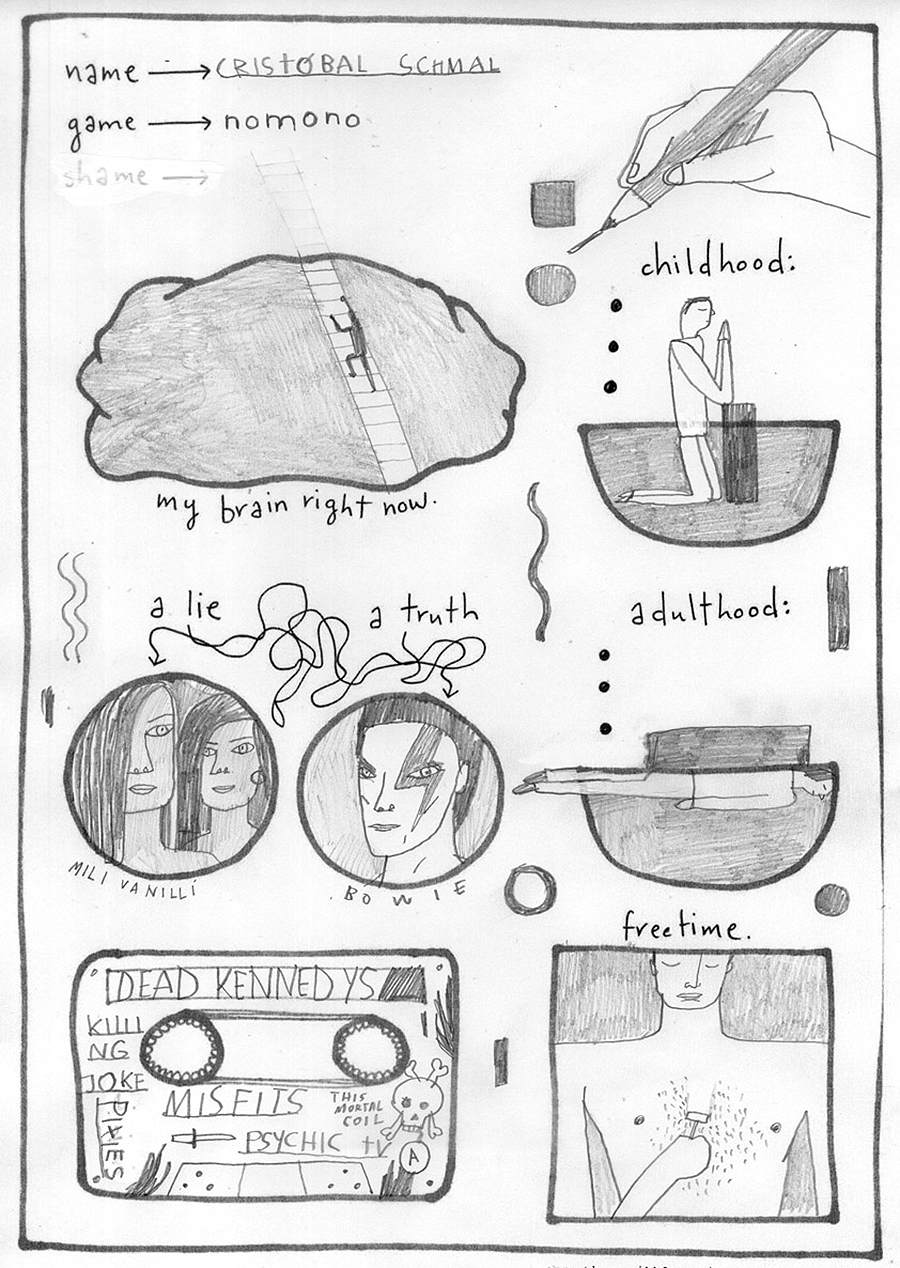 name → CRISTOBAL SCHMAL
game → nomono
shame →
childhood:
my brain right now.
a lie
a truth
adulthood:
MILI VANILLI
BOWIE
freetime.
DEAD KENNEDYS
KILLI
NG
JOKE
PIXIES
MISFITS
THIS
MORTAL
COIL
PSYCHIC TV
A